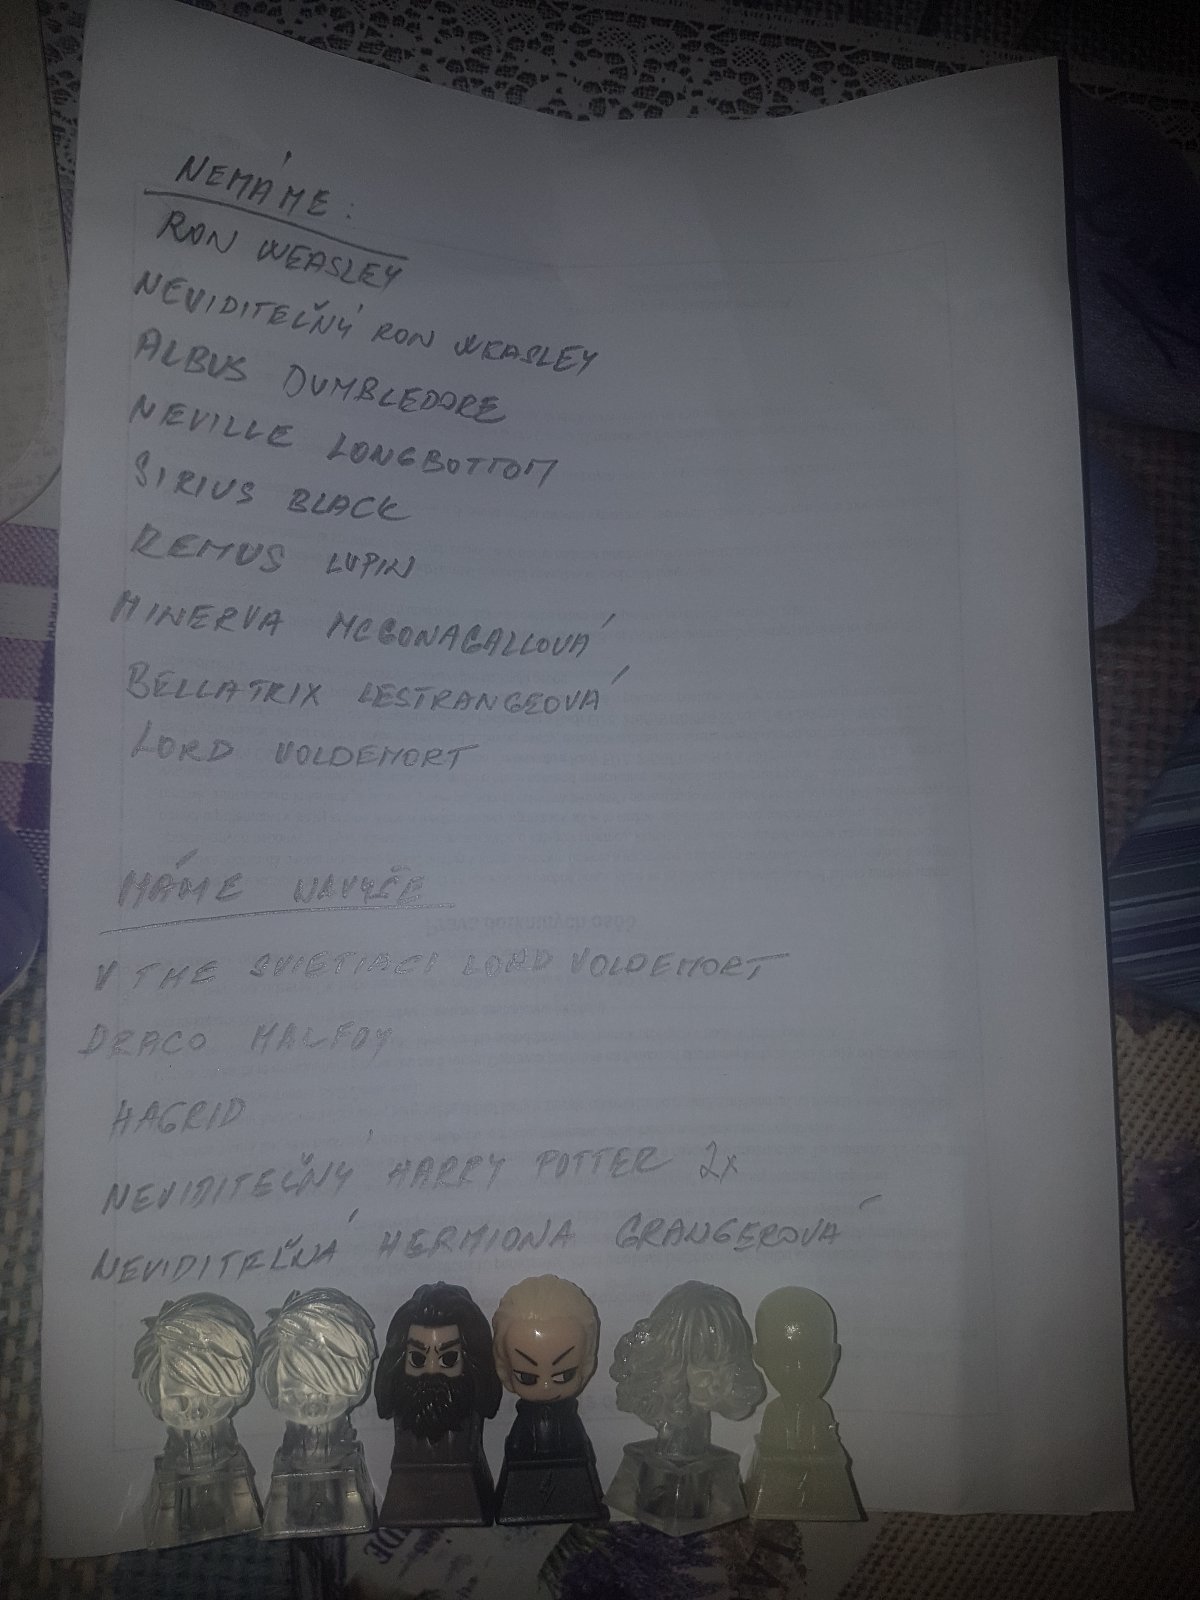 NEMÁME:
RON WEASLEY
NEVIDITEĽNÝ RON WEASLEY
ALBUS DUMBLEDORE
NEVILLE LONGBOTTOM
SIRIUS BLACK
REMUS LUPIN
MINERVA MCGONAGALLOVÁ
BELLATRIX LESTRANGEOVÁ
LORD VOLDEMORT
MÁME NAVYŠE
V TME SVIETIACI LORD VOLDEMORT
DRACO MALFOY
HAGRID
NEVIDITEĽNÝ HARRY POTTER 2x
NEVIDITEĽNÁ HERMIONA GRANGEROVÁ